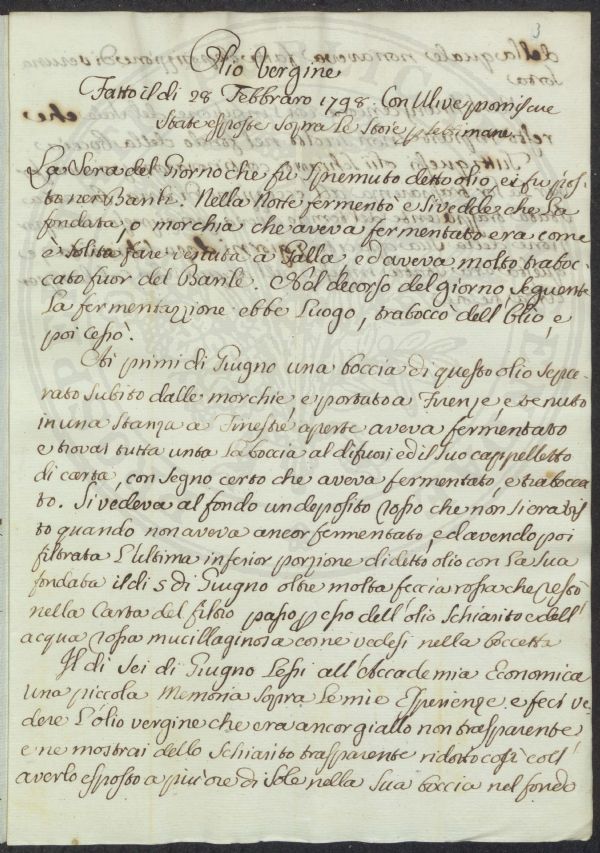 3
Olio Vergine
Fatto il di 28 Febbraro 1798. Con Ulive prorniscue
state esposte sopra le Stoie p settimane.
La Sera del Giorno che fù Spremuto detto olio, ei fù pos-
to ne Barili. Nella Notte fermentò e Si vedde che La
fondata, o morchia che aveva fermentato era come
è Solita fare venuta a Galla ed aveva molto traboc-
cato fuor del Barile. Nel decorso del giorno Seguente
La fermentazzione ebbe Luogo, traboccò dell'Olio, e
poi cessò.
Ai primi di Giugno una boccia di questo olio sepa-
rato Subito dalle morchie e portato a Firenze e tenuto
in una Stanza a Finestre aperte aveva fermentato
e trovai tutta unta La boccia al difuori ed il Suo cappelletto
di carta, con Segno certo che aveva fermentato, e trabocca
to. Si vedeva al fondo un deposito rosso che non si era vis
to quando non aveva ancor fermentato, ed avendo poi
filtrata L'ultima inferior porzione di detto olio con La Sua
fondata il di 5 di Giugno oltre molta feccia rossa che restò
nella Carta del filtro passò p esso dell'olio Schiarito e dell'
acqua rossa mucillaginosa come vedesi nella boccetta
Il di Sei di Giugno Lessi all'Accademia Economica
una piccola Memoria sopra Le mie Esperienze e feci ve-
dere L'olio vergine che era ancor giallo non trasparente
e ne mostrai dello Schiarito trasparente ridotto così coll'
averlo esposto a più ore di Sole nella Sua boccia nel fondo